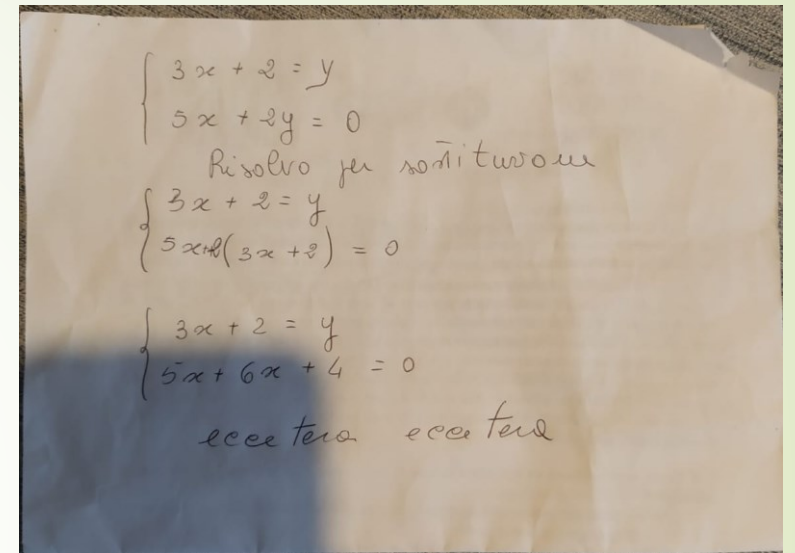 3x + 2 = y
5x + 2y = 0
Risolvo per sostituzione
3x + 2 = y
5x+2(3x+2) = 0
3x + 2 = y
5x + 6x + 4 = 0
eccetera eccetera